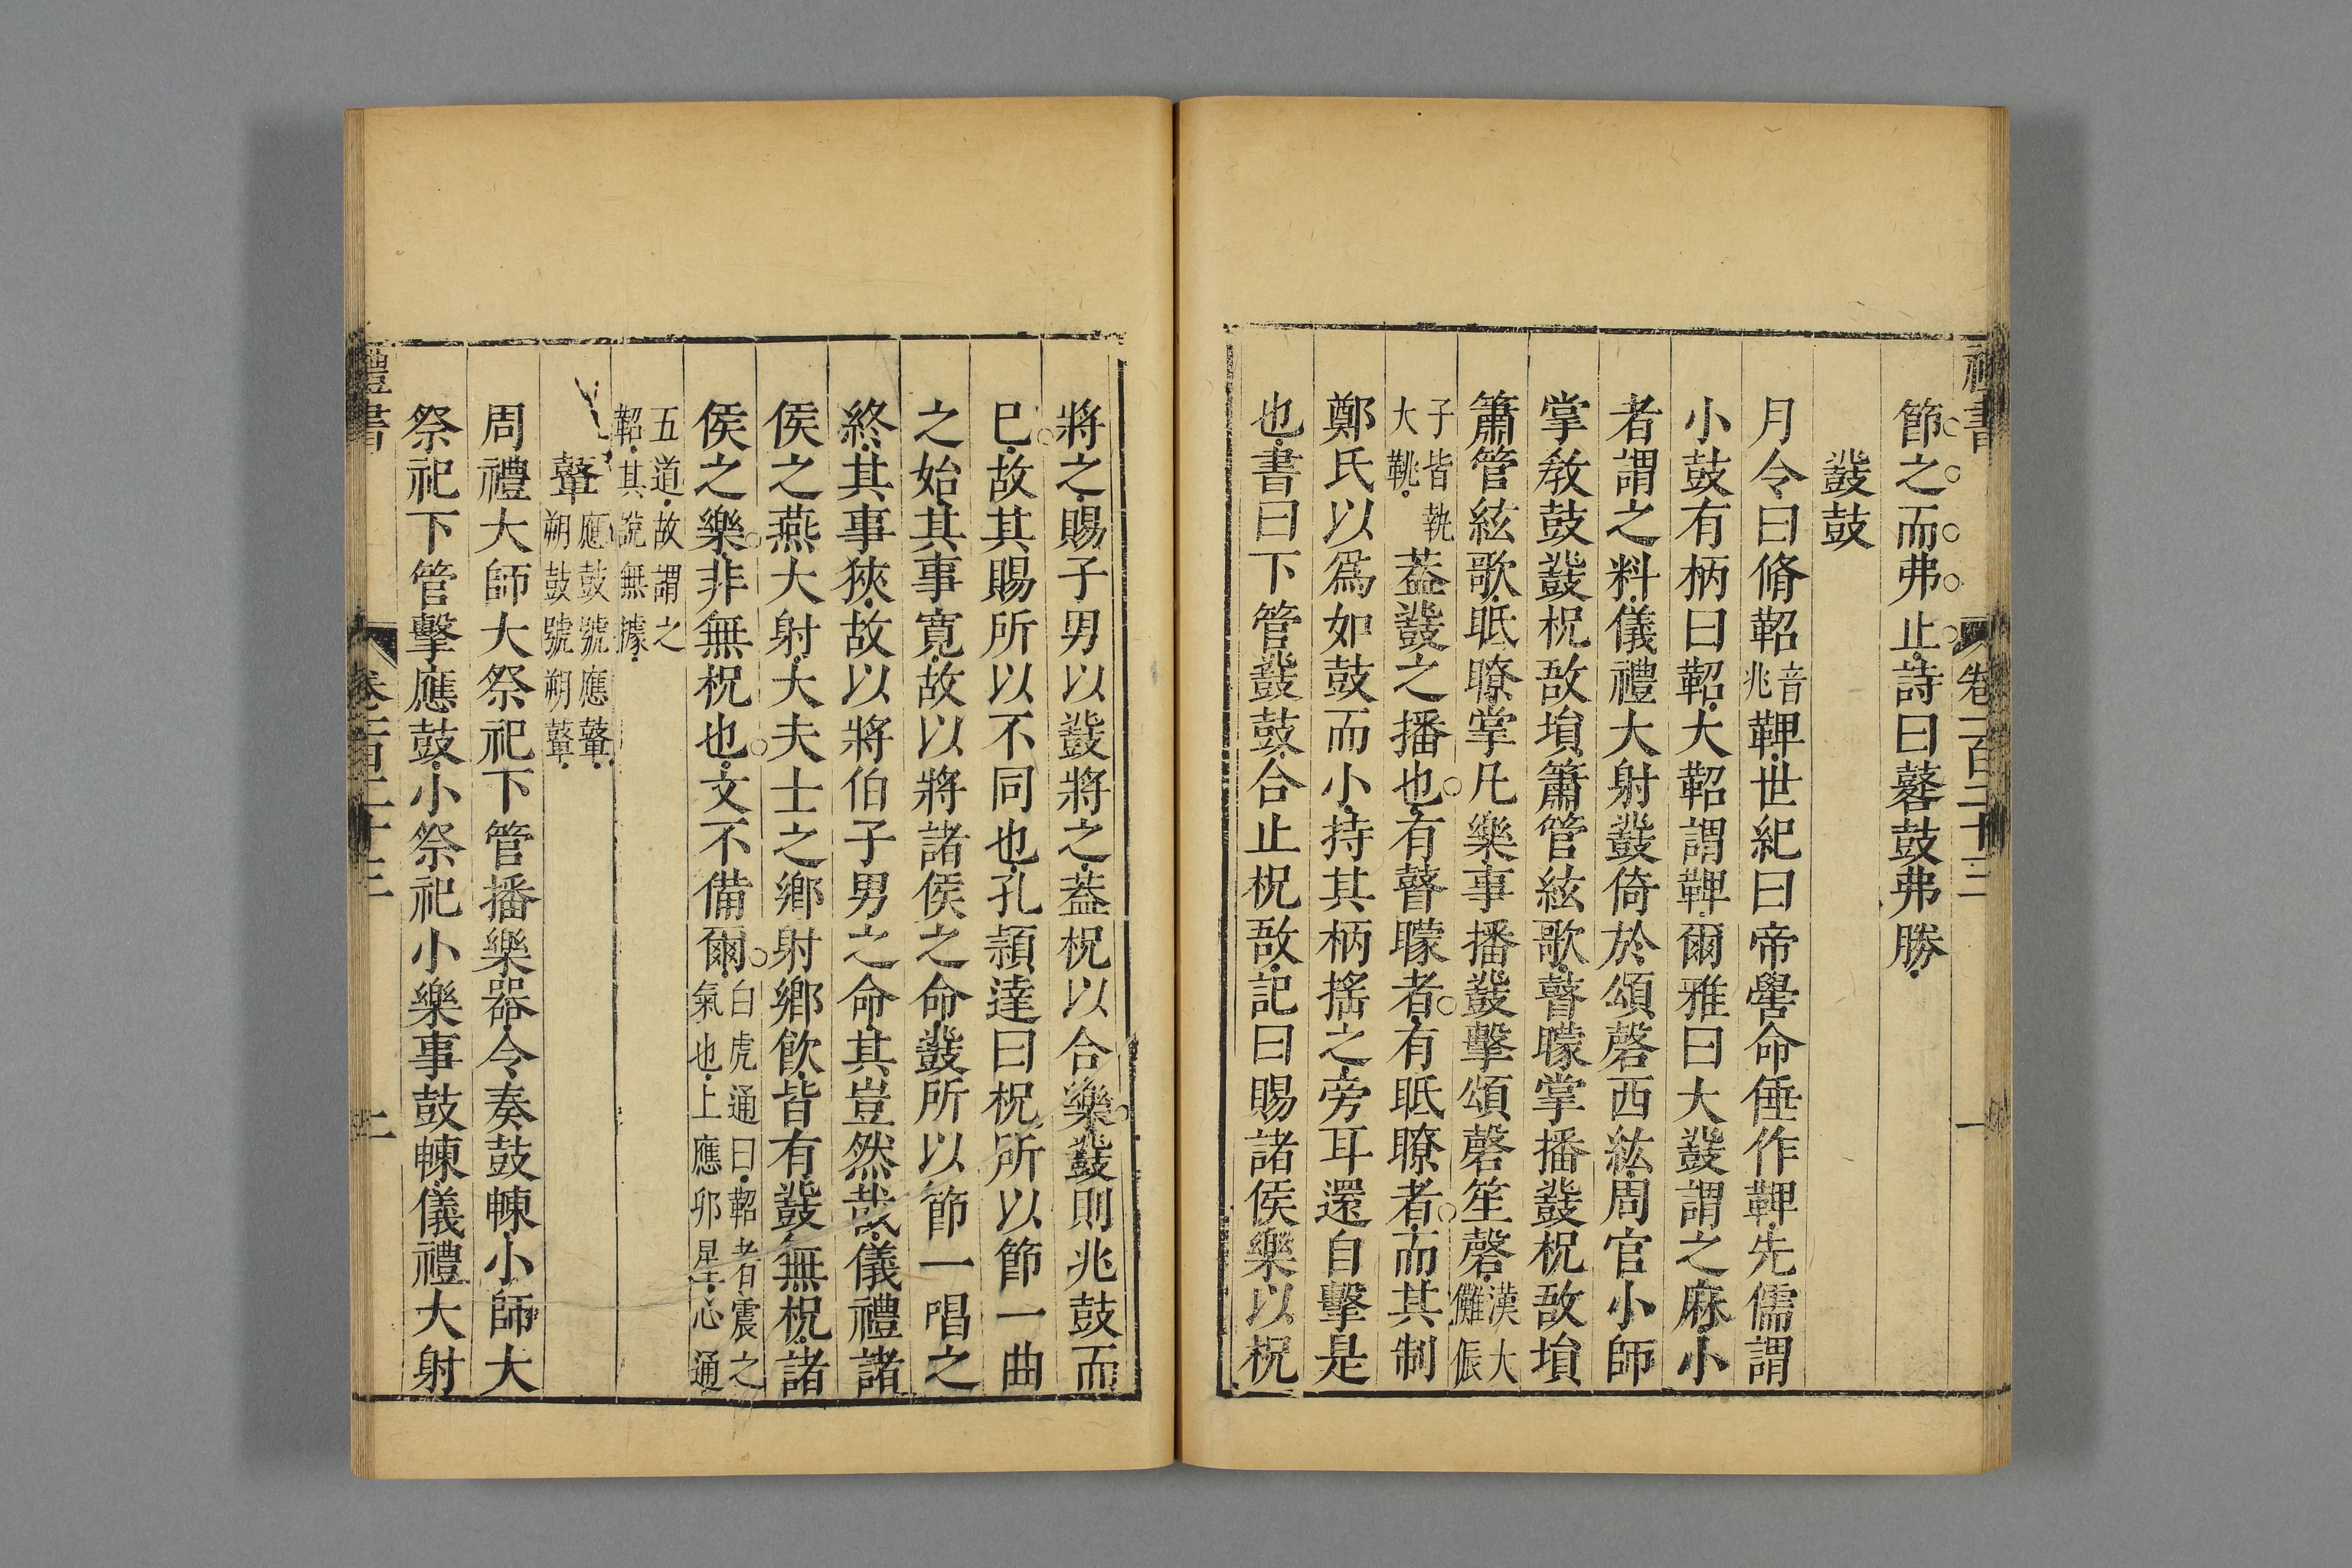 禮書 卷一百二十三 一
節之而弗止詩曰鼛鼓弗勝
鼗鼓
月令曰脩鞀音兆鞞世紀曰帝嚳命倕作鞞先儒謂
小鼓有柄曰鞀大鞀謂鞞爾雅曰大鼗謂之麻小
者謂之料儀禮大射鼗倚於頌磬西紘周官小師
掌敎鼓鼗柷敔塤簫管絃歌瞽矇掌播鼗柷敔塤
簫管絃歌眡瞭掌凡樂事播鼗擊頌磬笙磬漢大儺侲
子皆執大鞉蓋鼗之播也有瞽矇者有眡瞭者而其制
鄭氏以爲如鼓而小持其柄搖之旁耳還自擊是
也書曰下管鼗鼓合止柷敔記曰賜諸侯樂以柷
將之賜子男以鼗將之蓋柷以合樂鼗則兆鼓而
巳故其賜所以不同也孔潁達曰柷所以節一曲
之始其事寛故以將諸侯之命鼗所以節一唱之
終其事狹故以將伯子男之命其豈然哉儀禮諸
侯之燕大射大夫士之鄉射鄉飮皆有鼗無柷諸
侯之樂非無柷也文不備爾白虎通曰鞀者震之氣也上應卯星心通
五道故謂之鞀其說無據
鼙應鼓號應鼙朔鼓號朔鼙
周禮大師大祭祀下管播樂器令奏鼓朄小師大
祭祀下管擊應鼓小祭祀小樂事鼓朄儀禮大射
禮書 卷一百二十三 二